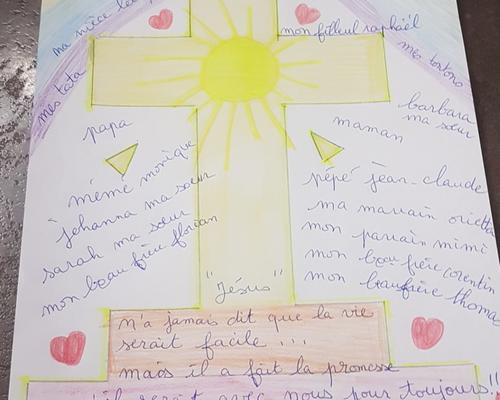 ma nièce
mon filleul raphaël
mes tata
mes tontons
barbara
ma sœur
papa
maman
mémé monique
johanna ma sœur
sarah ma sœur
mon beau frère florian
pépé jean-claude
ma marrain orietta
mon parrain mimi
mon beau frère corentin
mon beaufrère thoma
"Jésus"
n'a jamais dit que la vie
serait facile ...
mais il a fait la promesse
qu'il serait avec nous pour toujours!!